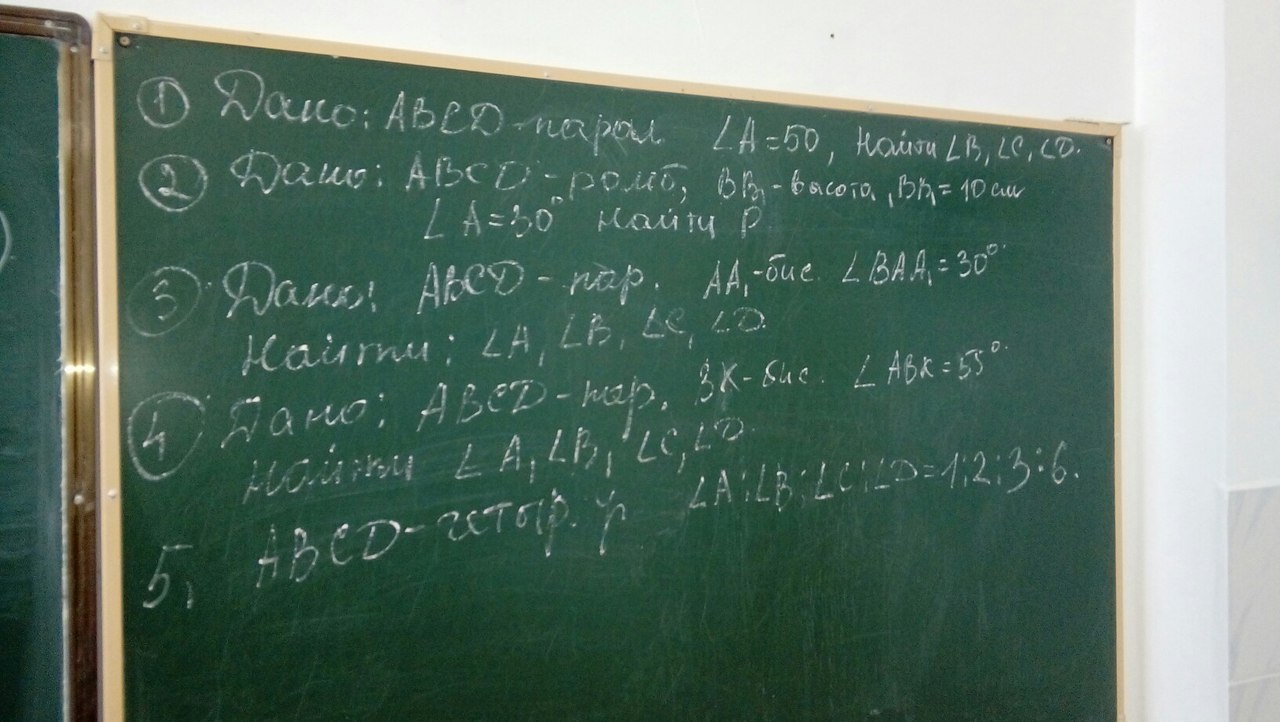 ① Дано: ABCD-парал ∠A=50, Найти ∠B, ∠C, ∠D.
② Дано: ABCD-ромб, BB₁-высота, BB₁=10 см
∠A=30° найти P
③ Дано: ABCD-пар. AA₁-бис. ∠BAA₁=30°.
Найти: ∠A, ∠B, ∠C, ∠D.
④ Дано: ABCD-пар. ВК-бис. ∠ABK=55°.
Найти ∠A, ∠B, ∠C, ∠D.
5, ABCD-четыр. ∠A:∠B:∠C:∠D=1:2:3:6.